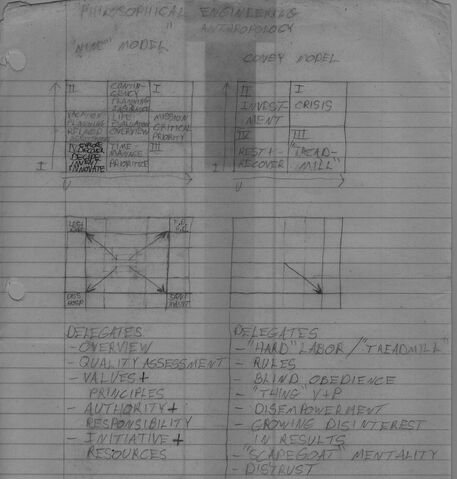 PHILOSOPHICAL ENGINEERING
" ANTHROPOLOGY
"NINE" MODEL
COVEY MODEL
II
CONTIN-
GENCY
PLANNING
I
LIFE
EVALUATION
OVERVIEW
MISSION
CRITICAL
PRIORITY
VACATION
PLANNING
IV
INVENT
INNOVATE
TIME-
MANAGE
PRIORITIZE
III
I
U
II
INVEST-
MENT
I
CRISIS
IV
REST +
RECOVER
III
"TREAD-
MILL"
I
U
DELEGATES
- OVERVIEW
- QUALITY ASSESSMENT
- VALUES +
PRINCIPLES
- AUTHORITY +
RESPONSIBILITY
- INITIATIVE +
RESOURCES
DELEGATES
- "HARD" LABOR / "TREADMILL"
- RULES
- BLIND OBEDIENCE
- "THING" V+P
- DISEMPOWERMENT
- GROWING DISINTEREST
IN RESULTS
- "SCAPEGOAT" MENTALITY
- DISTRUST